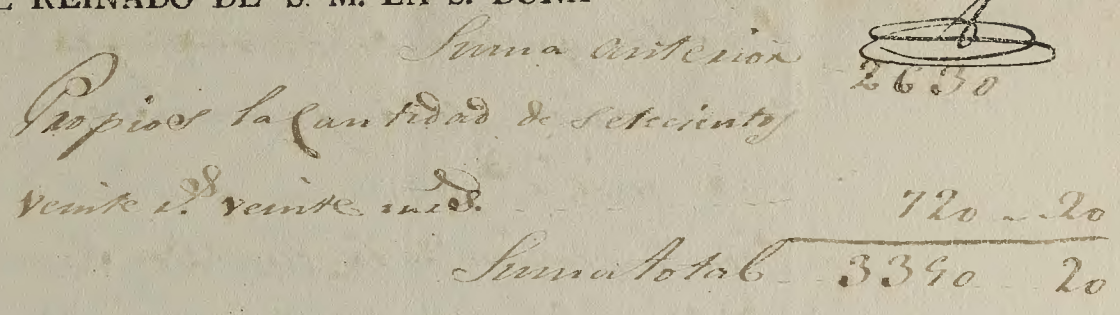 L REINADO DE S. M. LA S. DOÑA
Suma anterior 2630
Propios la Cantidad de setecientos
veinte r.s veinte mrs. 720 .. 20
Suma total 3350 20